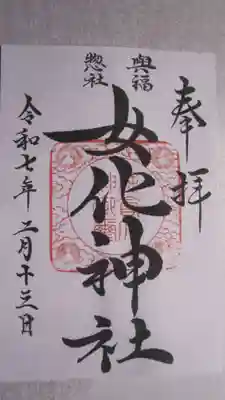 奉拝
與福
惣社
女化神社
令和七年二月十三日